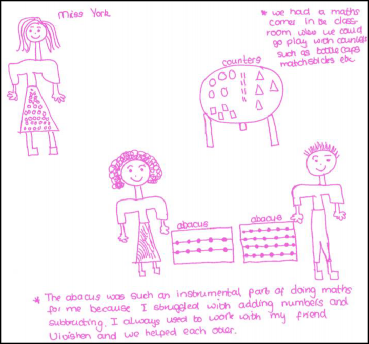 Miss York
* we had a maths
corner in the class-
room where we could
go play with counters
such as bottlecaps
matchsticks etc
counters
abacus
abacus
* The abacus was such an instrumental part of doing maths
for me because I struggled with adding numbers and
subtracting. I always used to work with my friend
and we helped each other.